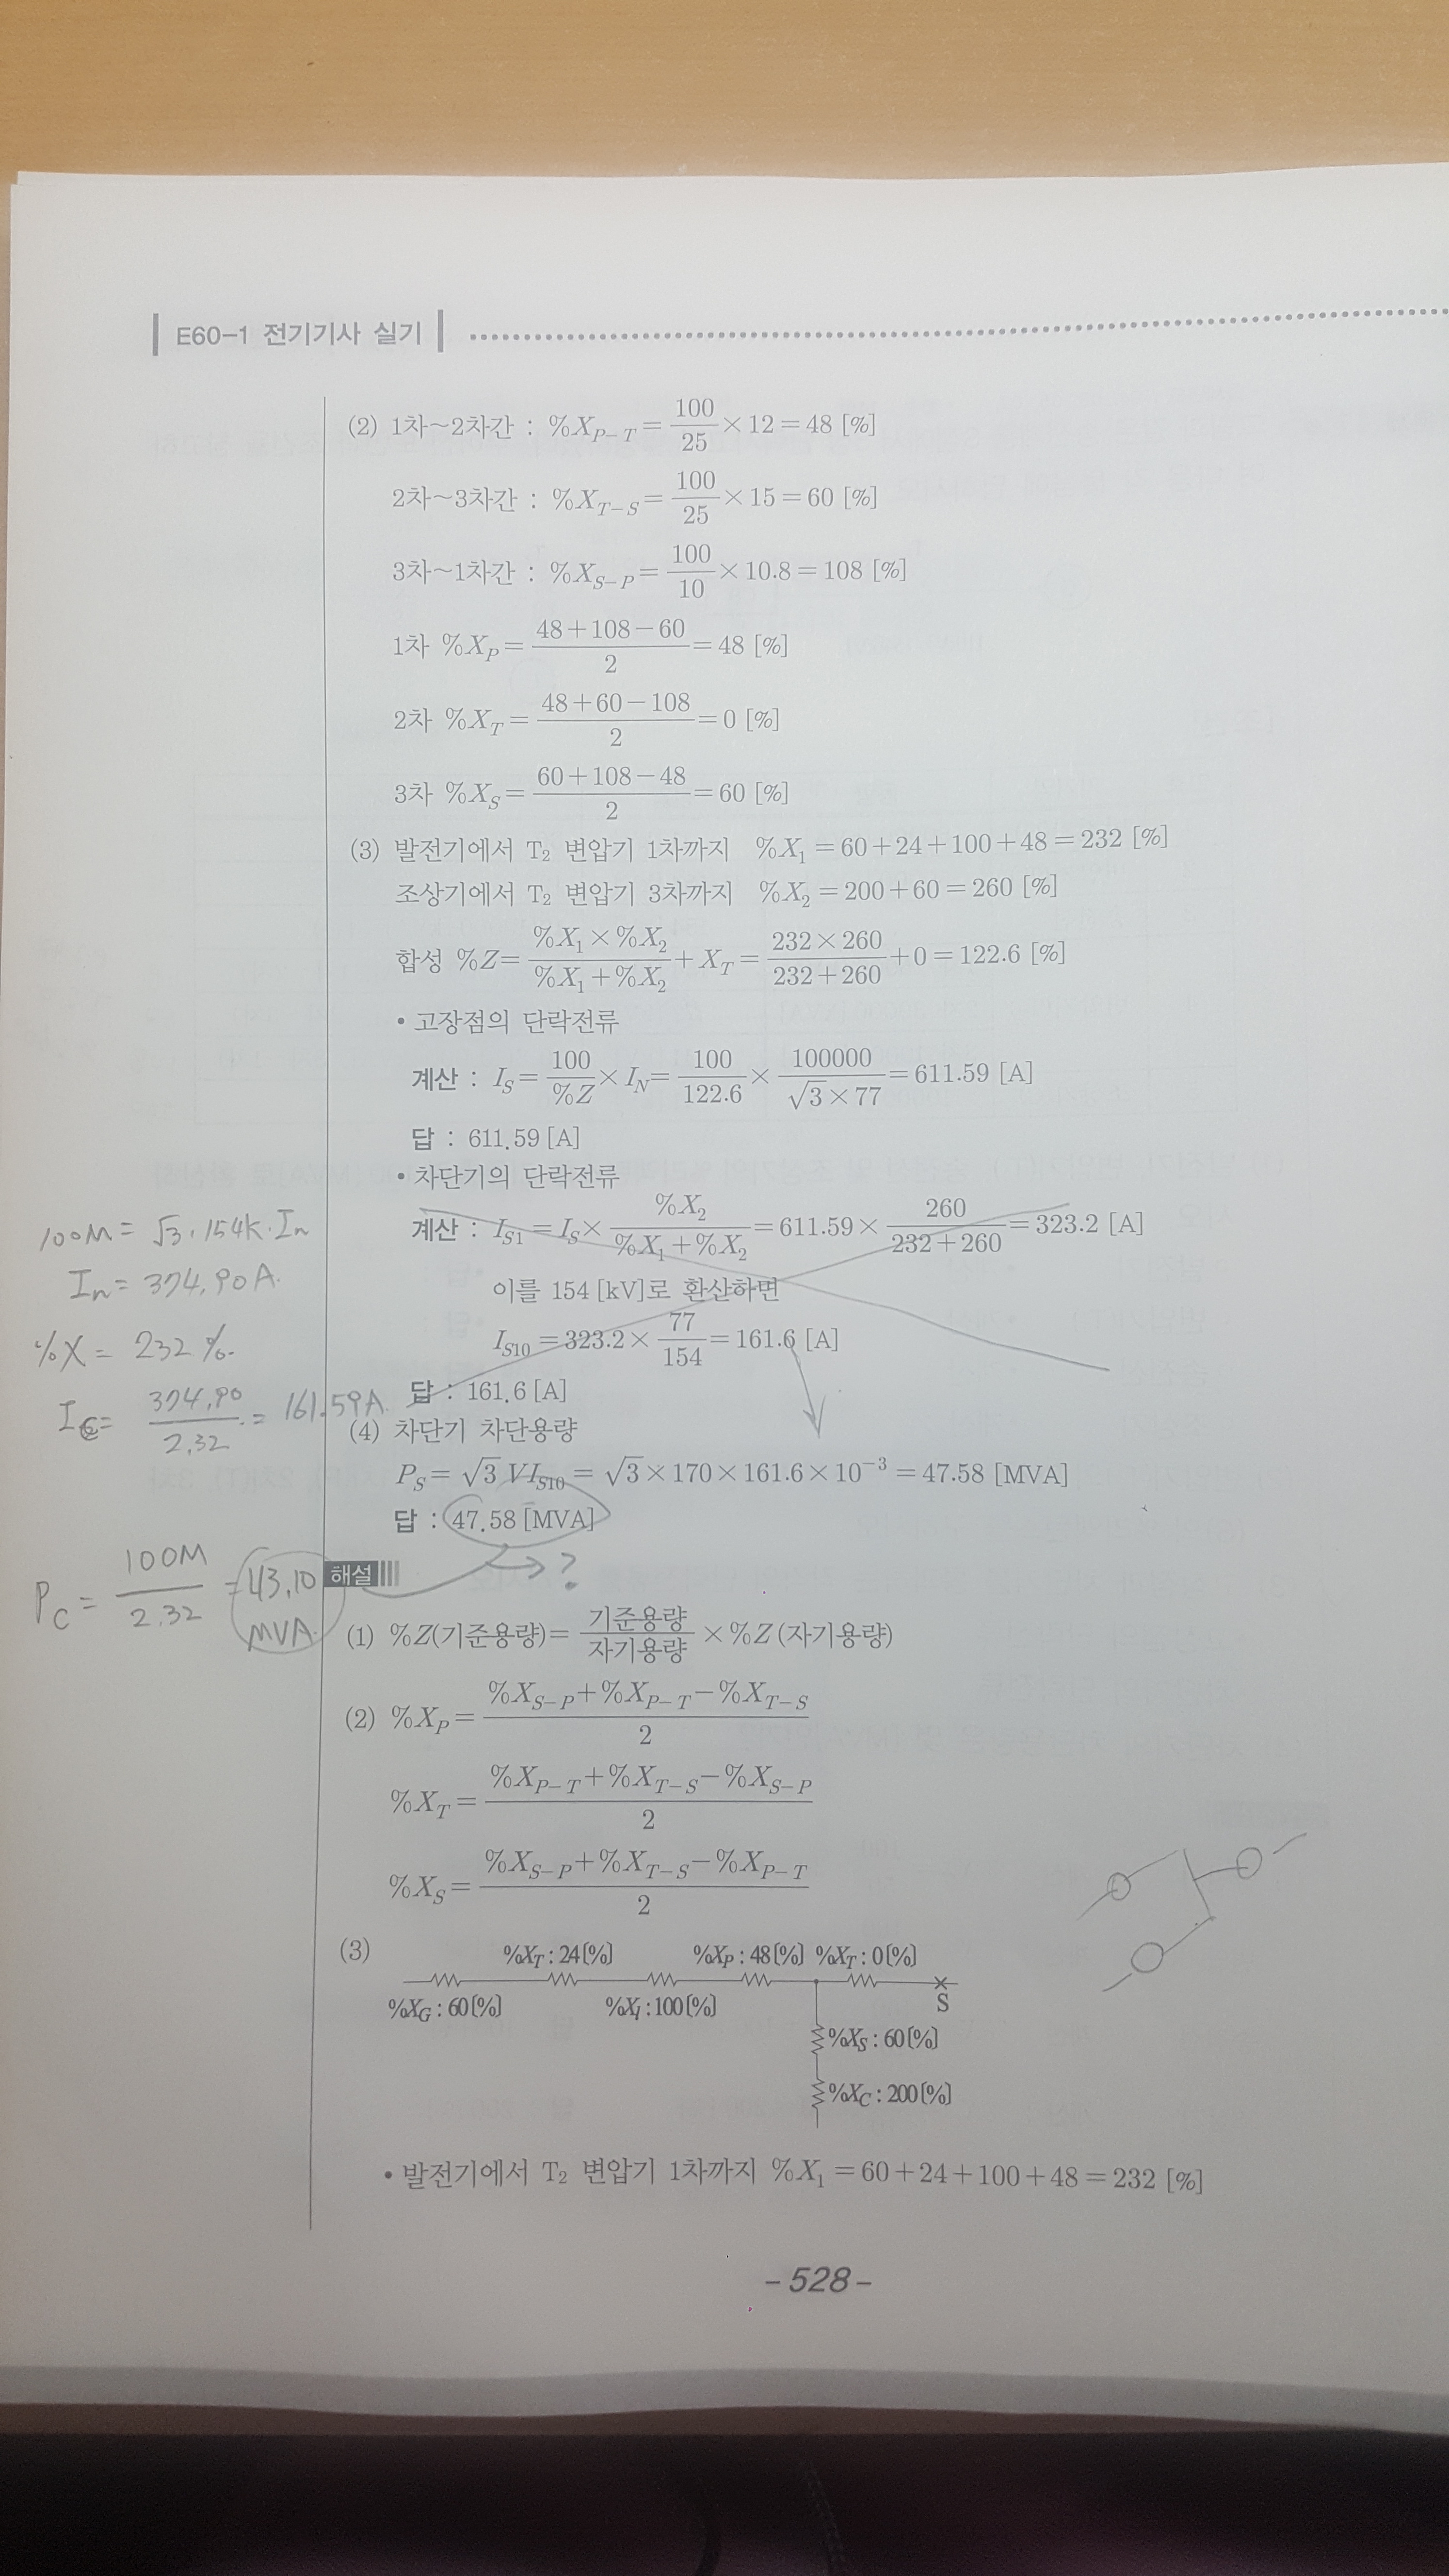 E60-1 전기기사 실기
(2) 1차~2차간 : %X_{P-T} = 100/25 × 12 = 48 [%]
2차~3차간 : %X_{T-S} = 100/25 × 15 = 60 [%]
3차~1차간 : %X_{S-P} = 100/10 × 10.8 = 108 [%]
1차 %X_P = (48+108-60)/2 = 48 [%]
2차 %X_T = (48+60-108)/2 = 0 [%]
3차 %X_S = (60+108-48)/2 = 60 [%]
(3) 발전기에서 T₂ 변압기 1차까지 %X₁ = 60+24+100+48 = 232 [%]
조상기에서 T₂ 변압기 3차까지 %X₂ = 200+60 = 260 [%]
합성 %Z = (%X₁×%X₂)/(%X₁+%X₂) + X_T = (232×260)/(232+260) + 0 = 122.6 [%]
• 고장점의 단락전류
계산 : I_S = 100/%Z × I_N = 100/122.6 × 100000/(√3×77) = 611.59 [A]
답 : 611.59 [A]
• 차단기의 단락전류
계산 : I_{S1} = I_S × %X₂/(%X₁+%X₂) = 611.59 × 260/(232+260) = 323.2 [A]
이를 154 [kV]로 환산하면
I_{S10} = 323.2 × 77/154 = 161.6 [A]
답 : 161.6 [A]
(4) 차단기 차단용량
P_S = √3 VI_{S10} = √3 × 170 × 161.6 × 10⁻³ = 47.58 [MVA]
답 : 47.58 [MVA]
→ ?
100M = √3 · 154k · In
In = 374.90A.
%X = 232 %.
= 374.90/2.32 = 161.59A.
Pc = 100M/2.32 = 43.10 MVA.
해설
(1) %Z(기준용량) = 기준용량/자기용량 × %Z(자기용량)
(2) %X_P = (%X_{S-P}+%X_{P-T}-%X_{T-S})/2
%X_T = (%X_{P-T}+%X_{T-S}-%X_{S-P})/2
%X_S = (%X_{S-P}+%X_{T-S}-%X_{P-T})/2
(3)
%X_T : 24[%] %X_P : 48[%] %X_T : 0[%]
%X_G : 60[%] %X_l : 100[%] S
%X_S : 60[%]
%X_C : 200[%]
• 발전기에서 T₂ 변압기 1차까지 %X₁ = 60+24+100+48 = 232 [%]
- 528 -